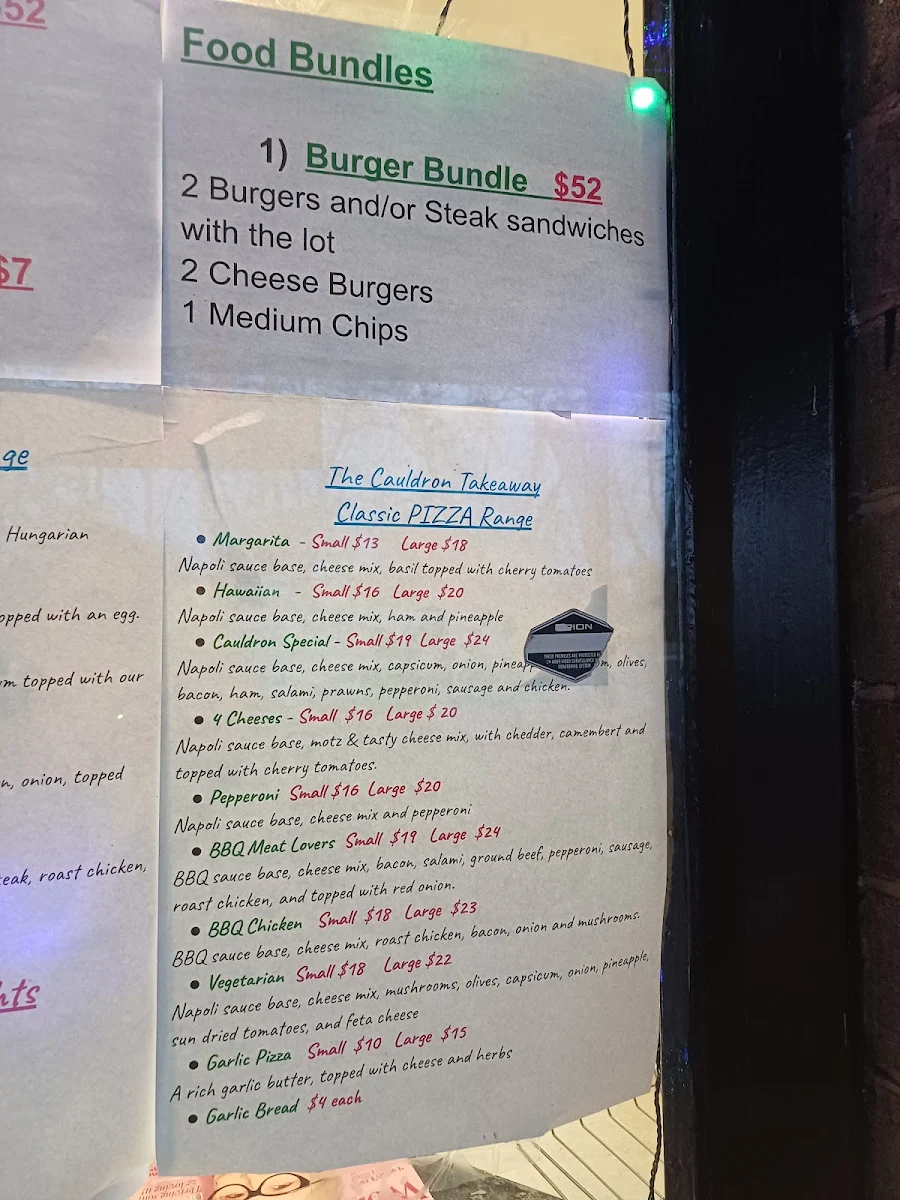 $52
$7
ge
Hungarian
opped with an egg.
m topped with our
n, onion, topped
teak, roast chicken,
hts
Food Bundles
1) Burger Bundle $52
2 Burgers and/or Steak sandwiches
with the lot
2 Cheese Burgers
1 Medium Chips
The Cauldron Takeaway
Classic PIZZA Range
• Margarita - Small $13 Large $18
Napoli sauce base, cheese mix, basil topped with cherry tomatoes
• Hawaiian - Small $16 Large $20
Napoli sauce base, cheese mix, ham and pineapple
• Cauldron Special - Small $19 Large $24
Napoli sauce base, cheese mix, capsicum, onion, pineap m, olives,
bacon, ham, salami, prawns, pepperoni, sausage and chicken.
• 4 Cheeses - Small $16 Large $ 20
Napoli sauce base, motz & tasty cheese mix, with chedder, camembert and
topped with cherry tomatoes.
• Pepperoni Small $16 Large $20
Napoli sauce base, cheese mix and pepperoni
• BBQ Meat Lovers Small $19 Large $24
BBQ sauce base, cheese mix, bacon, salami, ground beef, pepperoni, sausage,
roast chicken, and topped with red onion.
• BBQ Chicken Small $18 Large $23
BBQ sauce base, cheese mix, roast chicken, bacon, onion and mushrooms.
• Vegetarian Small $18 Large $22
Napoli sauce base, cheese mix, mushrooms, olives, capsicum, onion, pineapple,
sun dried tomatoes, and feta cheese
• Garlic Pizza Small $10 Large $15
A rich garlic butter, topped with cheese and herbs
• Garlic Bread $4 each
THESE PREMISES ARE PROTECTED BY
24 HOUR VIDEO SURVEILLANCE
MONITORING SYSTEM